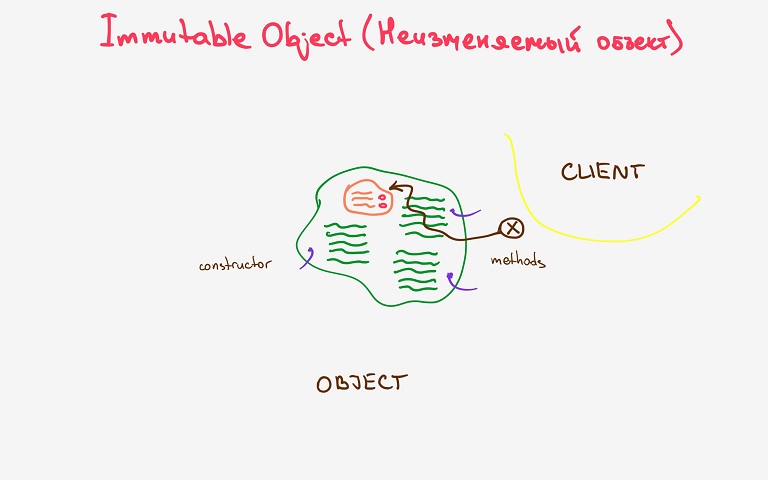 Immutable Object (Неизменяемый объект)
CLIENT
constructor
methods
OBJECT